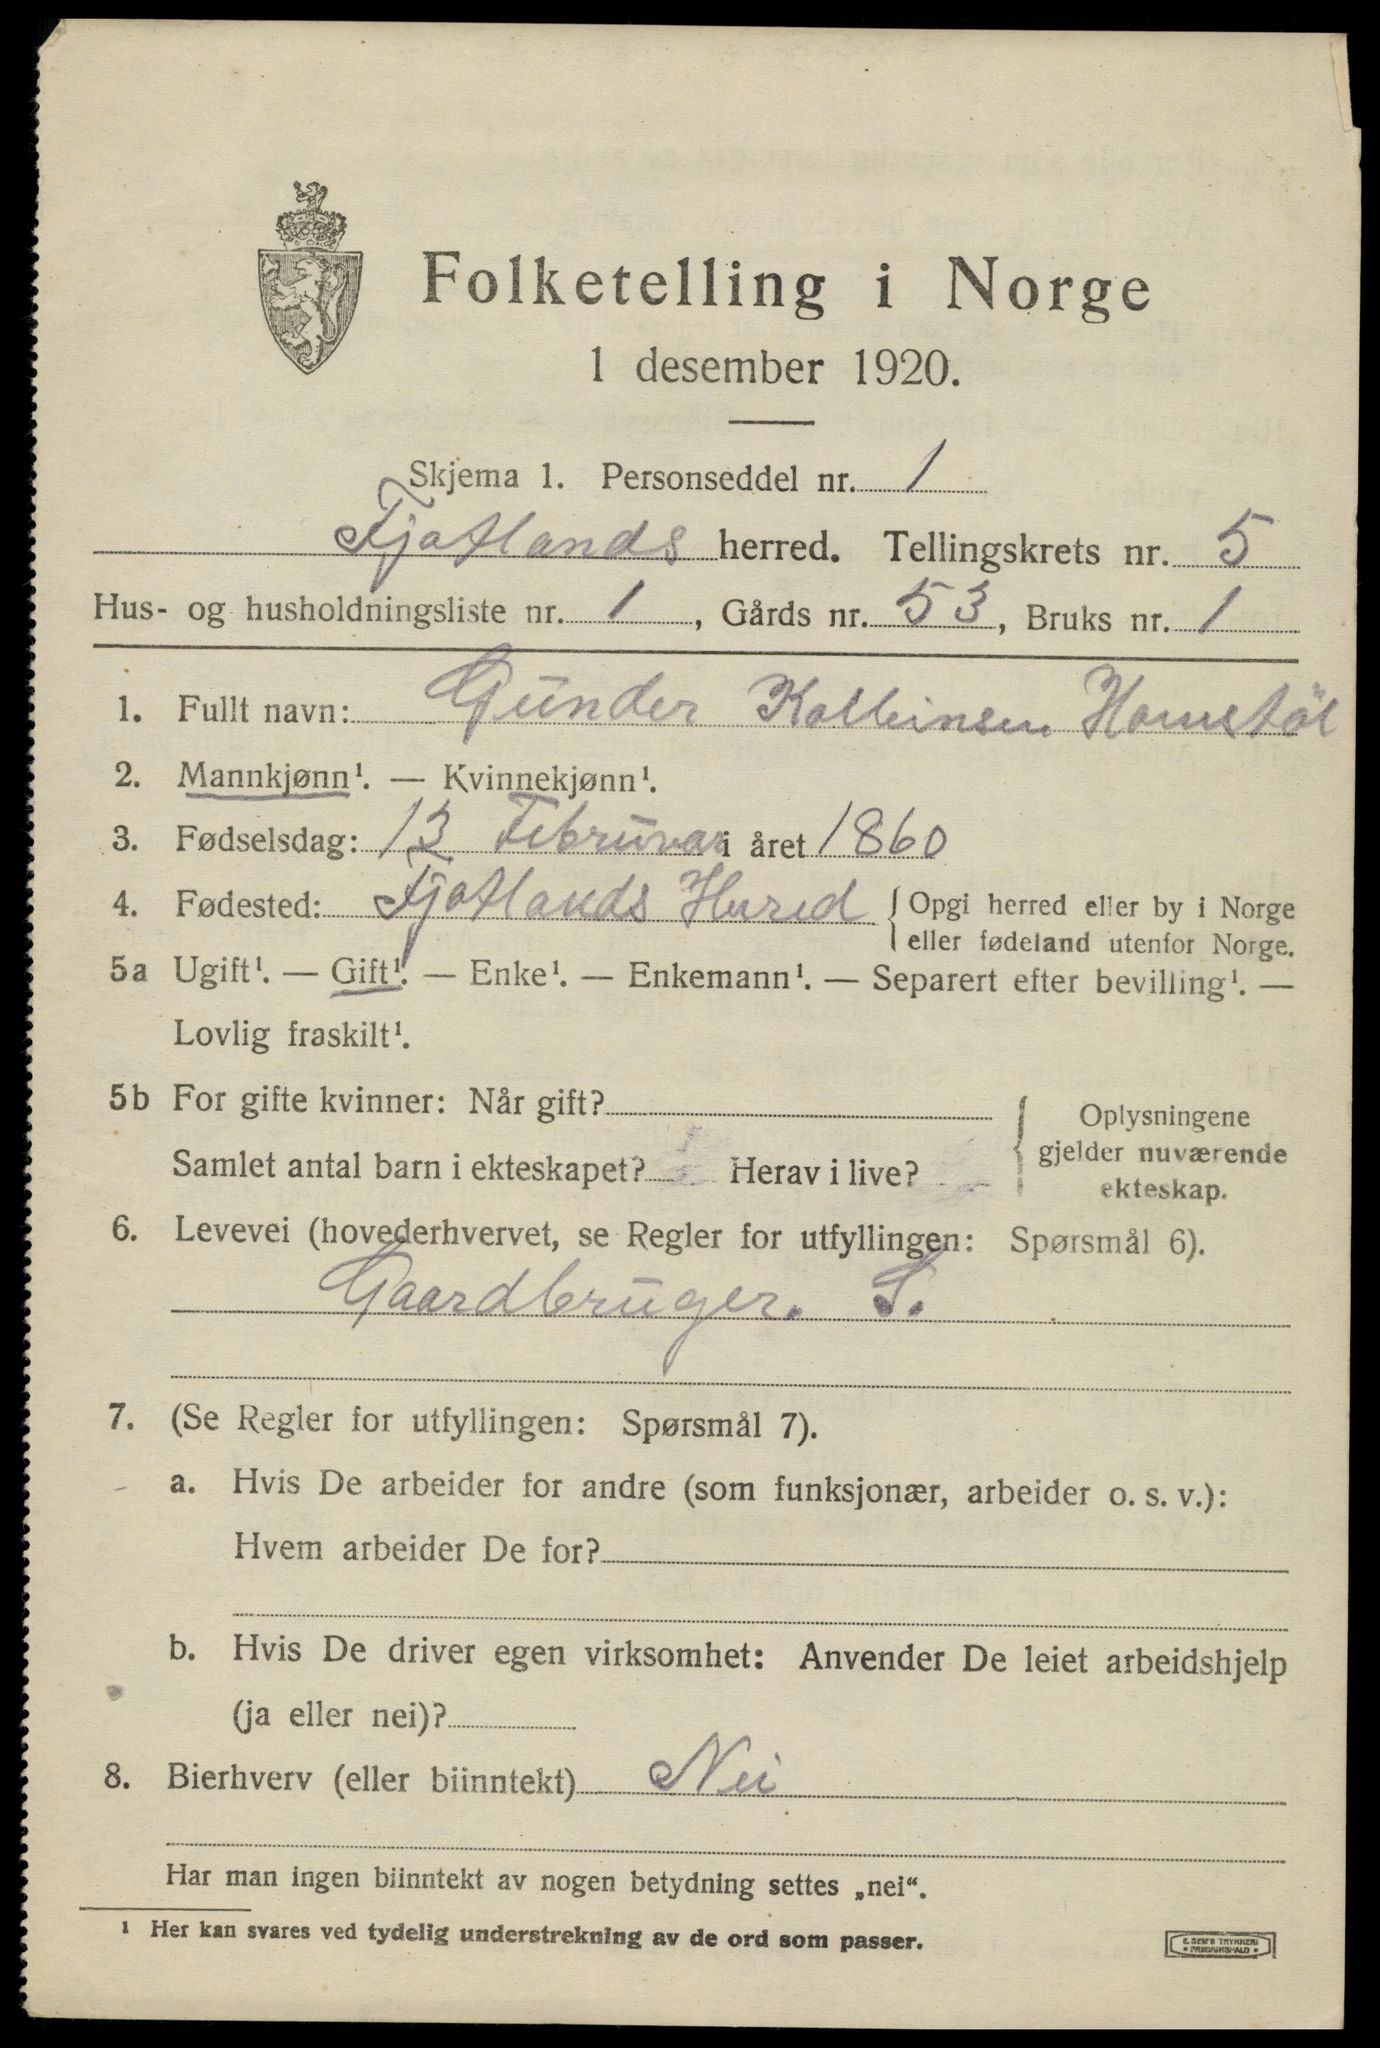 Folketelling i Norge
1 desember 1920.
Skjema 1. Personseddel nr. 1
Fjotlands herred. Tellingskrets nr. 5
Hus- og husholdningsliste nr. 1, Gårds nr. 53, Bruks nr. 1
1. Fullt navn: Gunder Kolbeinsen Homstøl
2. Mannkjønn¹. — Kvinnekjønn¹.
3. Fødselsdag: 13 Februar i året 1860
4. Fødested: Fjotlands Hered { Opgi herred eller by i Norge
eller fødeland utenfor Norge.
5a Ugift¹. — Gift¹. — Enke¹. — Enkemann¹. — Separert efter bevilling¹. —
Lovlig fraskilt¹.
5b For gifte kvinner: Når gift?
Samlet antal barn i ekteskapet? Herav i live?
{ Oplysningene
gjelder nuværende
ekteskap.
6. Levevei (hovederhvervet, se Regler for utfyllingen: Spørsmål 6).
Gaardbruger. S.
7. (Se Regler for utfyllingen: Spørsmål 7).
a. Hvis De arbeider for andre (som funksjonær, arbeider o. s. v.):
Hvem arbeider De for?
b. Hvis De driver egen virksomhet: Anvender De leiet arbeidshjelp
(ja eller nei)?
8. Bierhverv (eller biinntekt) Nei
Har man ingen biinntekt av nogen betydning settes „nei“.
¹ Her kan svares ved tydelig understrekning av de ord som passer.
E. SEM'S TRYKKERI
• FREDRIKSHALD •